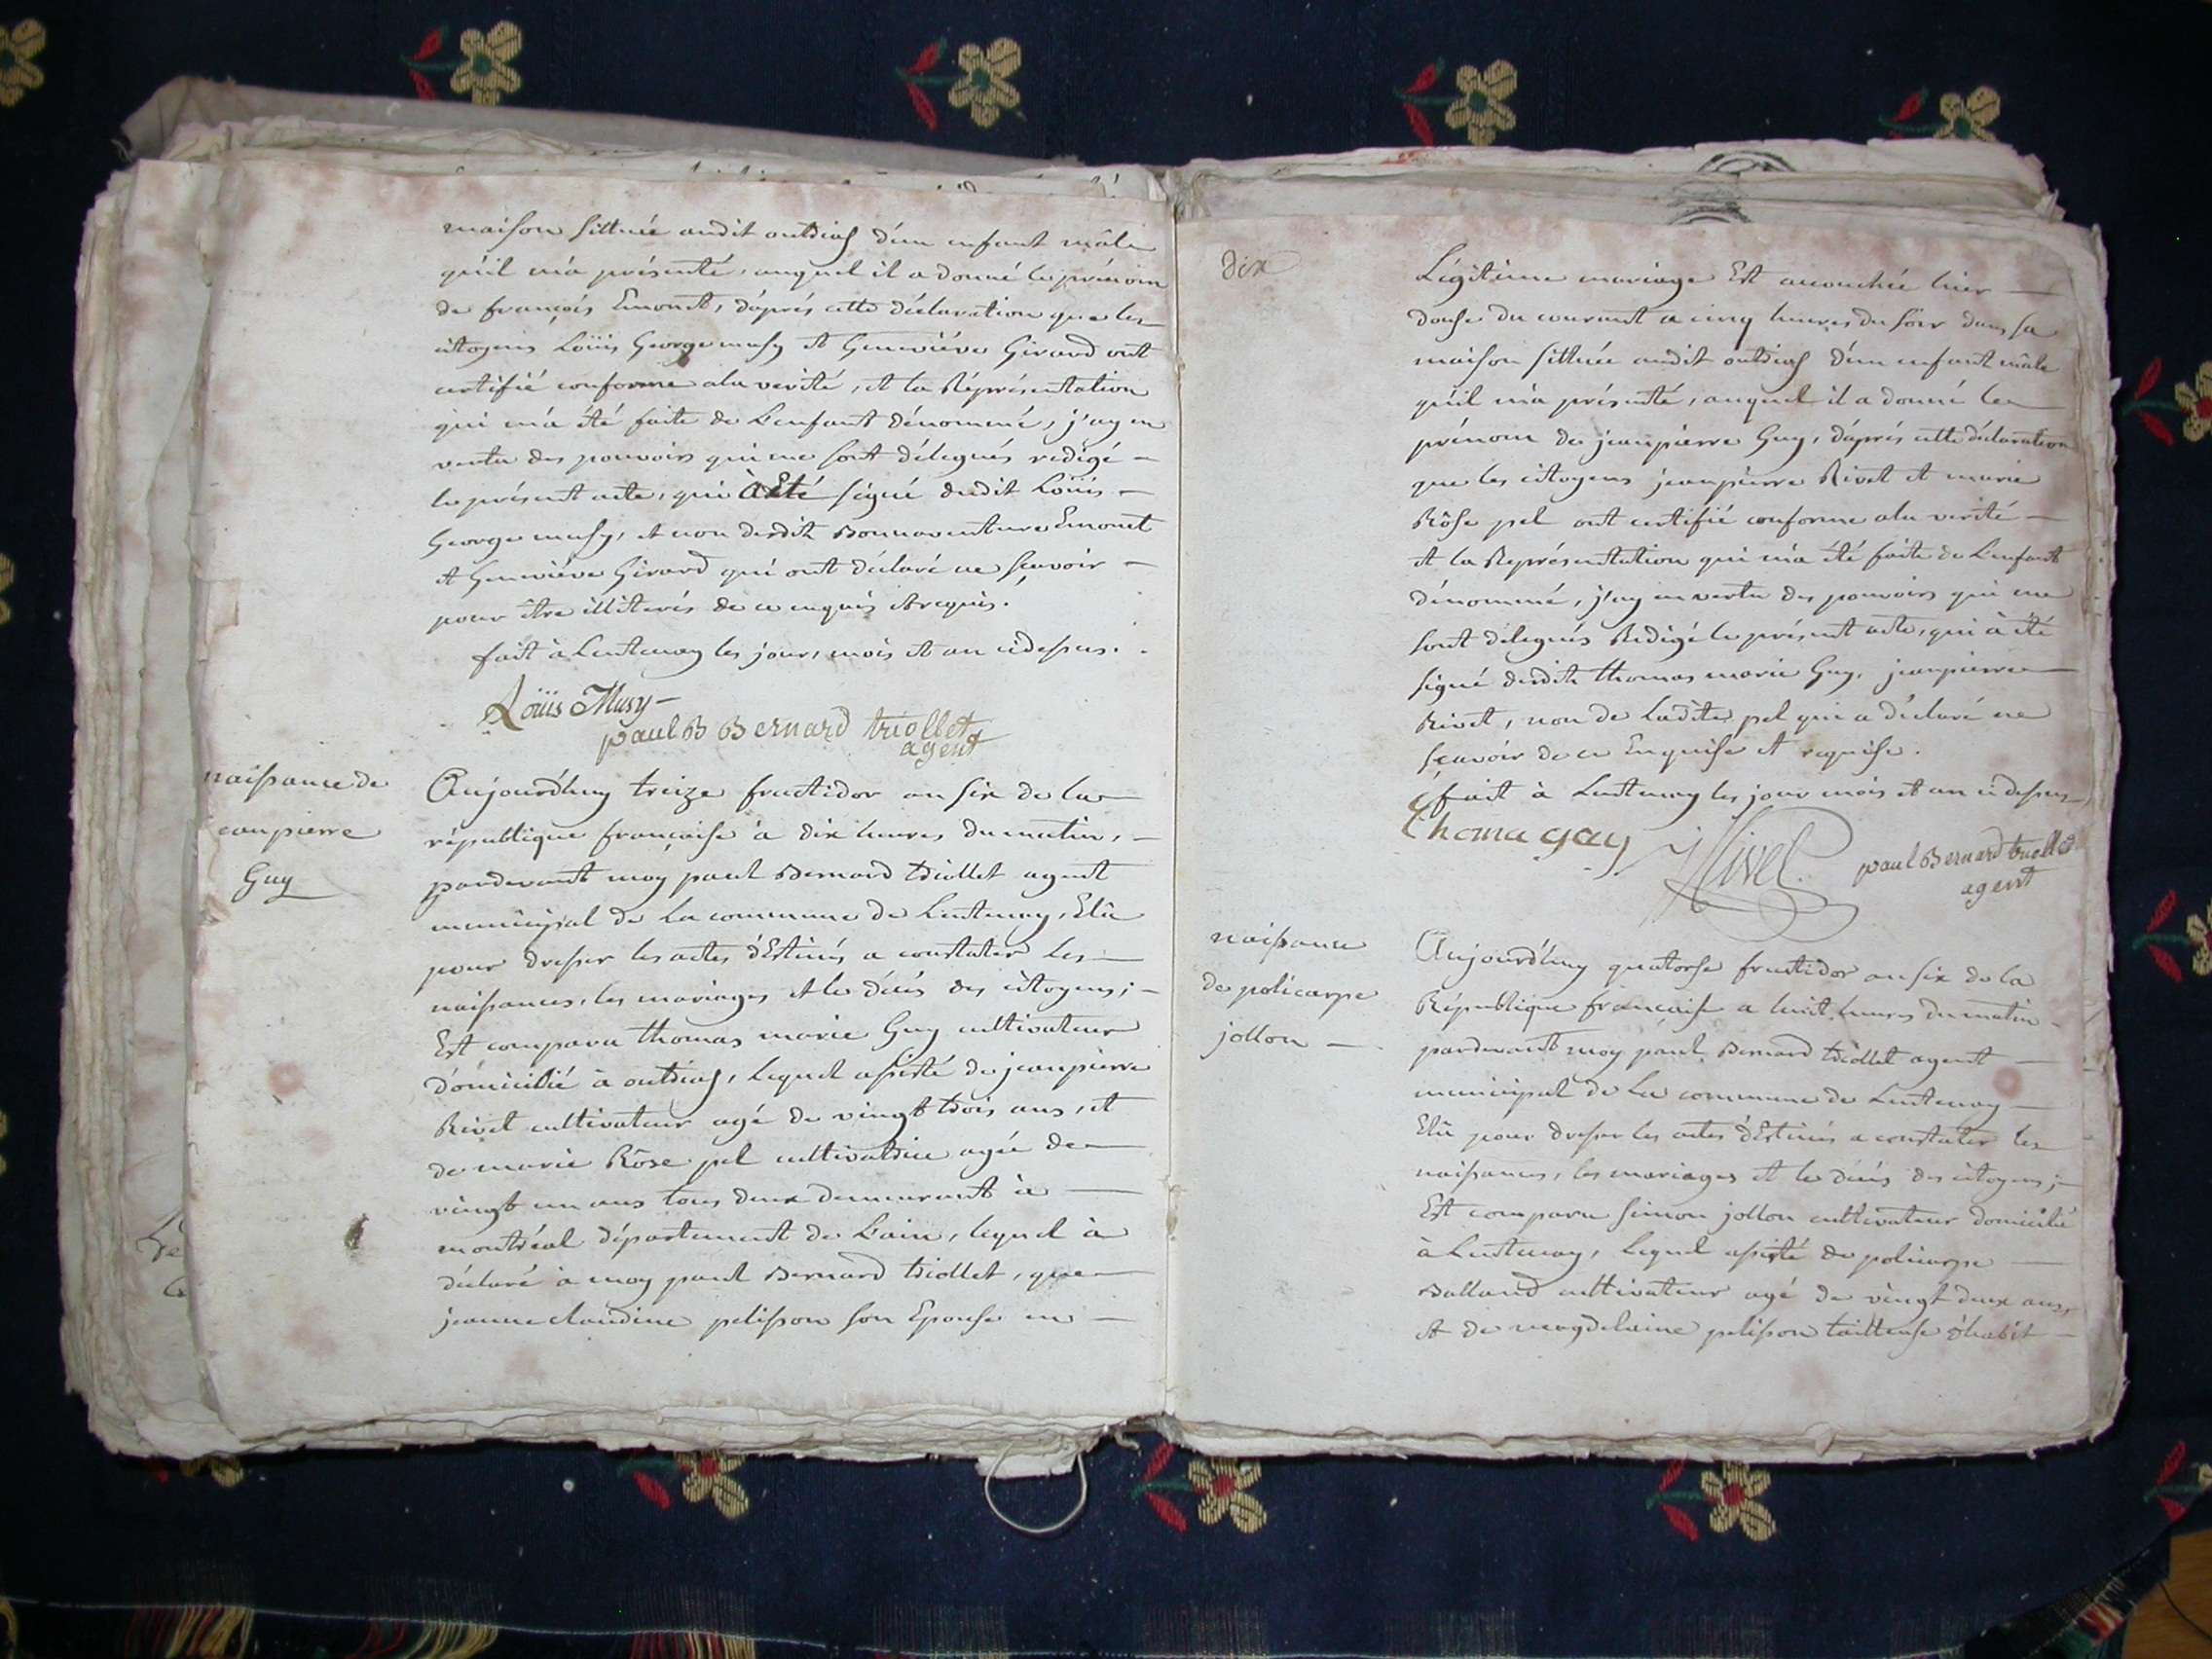 maison sittuée audit outriaz d'un enfant mâle
qu'il m'a présenté, auquel il a donné le prénom
de françois Emonet, d'aprés cette déclaration que les
citoyens Loüis George musy et Geneviéve Girard ont
certifié conforme a la verité, et la Réprésentation
qui m'a été faite de L'enfant dénommé, j'ay en
vertu des pouvoirs qui me sont délegués redigé
le présent acte, qui à Eté signé dudit Loüis
George musy, et non desdit Bonnaventure Emonet
et Geneviéve Girard qui ont déclaré ne sçavoir
pour être illiterés de ce enquis et requis.
fait à Lentenay les jour, mois et an ci dessus.
Loüis Musy
paul B Bernard triollet
agent
naissance de
jeanpierre
Guy
Aujourd'huy treize fructidor an six de la
république française à dix heures du matin,
pardevant moy paul Bernard triollet agent
municipal de la commune de Lentenay, Elû
pour dresser les actes d'Estinés a constater les
naissances, les mariages et le décés des citoyens;
Est comparu thomas marie Guy cultivateur
domicilié à outriaz, lequel assisté de jeanpierre
Rivet cultivateur agé de vingt trois ans, et
de marie Rôse pel cultivatrice agée de
vingt un ans tous deux demeurant à
montréal département de L'ain, lequel à
déclaré à moy paul Bernard triollet, que
jeanne claudine pelisson son Epouse en
dix
Légitime mariage Est accouchée hier
douse du courant a cinq heures du soir dans sa
maison sittuée audit outriaz d'un enfant mâle
qu'il m'a présenté, auquel il a donné le
prénom de jeanpierre Guy, d'aprés cette déclaration
que les citoyens jeanpierre Rivet et marie
Rôse pel ont certifié conforme a la verité
et la Représentation qui m'a été faite de L'enfant
dénommé, j'ay en vertu des pouvoirs qui me
sont délegués Redigé le présent acte, qui à été
signé desdits thomas marie Guy, jeanpierre
Rivet, non de Ladite pel qui a déclaré ne
sçavoir de ce Enquise et requise.
fait à Lentenay les jour mois et an ci dessus
thoma gay
paul Bernard triollet
agent
naissance
de policarpe
jollon
Aujourd'huy quatorse fructidor an six de la
République française a huit heures du matin
pardevant moy paul Bernard triollet agent
municipal de La commune de Lentenay
Elû pour dresser les actes d'Estinés a constater les
naissances, les mariages et le décés des citoyens;
Est comparu simon jollon cultivateur domicilié
à Lentenay, lequel assisté de policarpe
Balland cultivateur agé de vingt deux ans,
et de magdelaine pelisson tailleuse d'habit